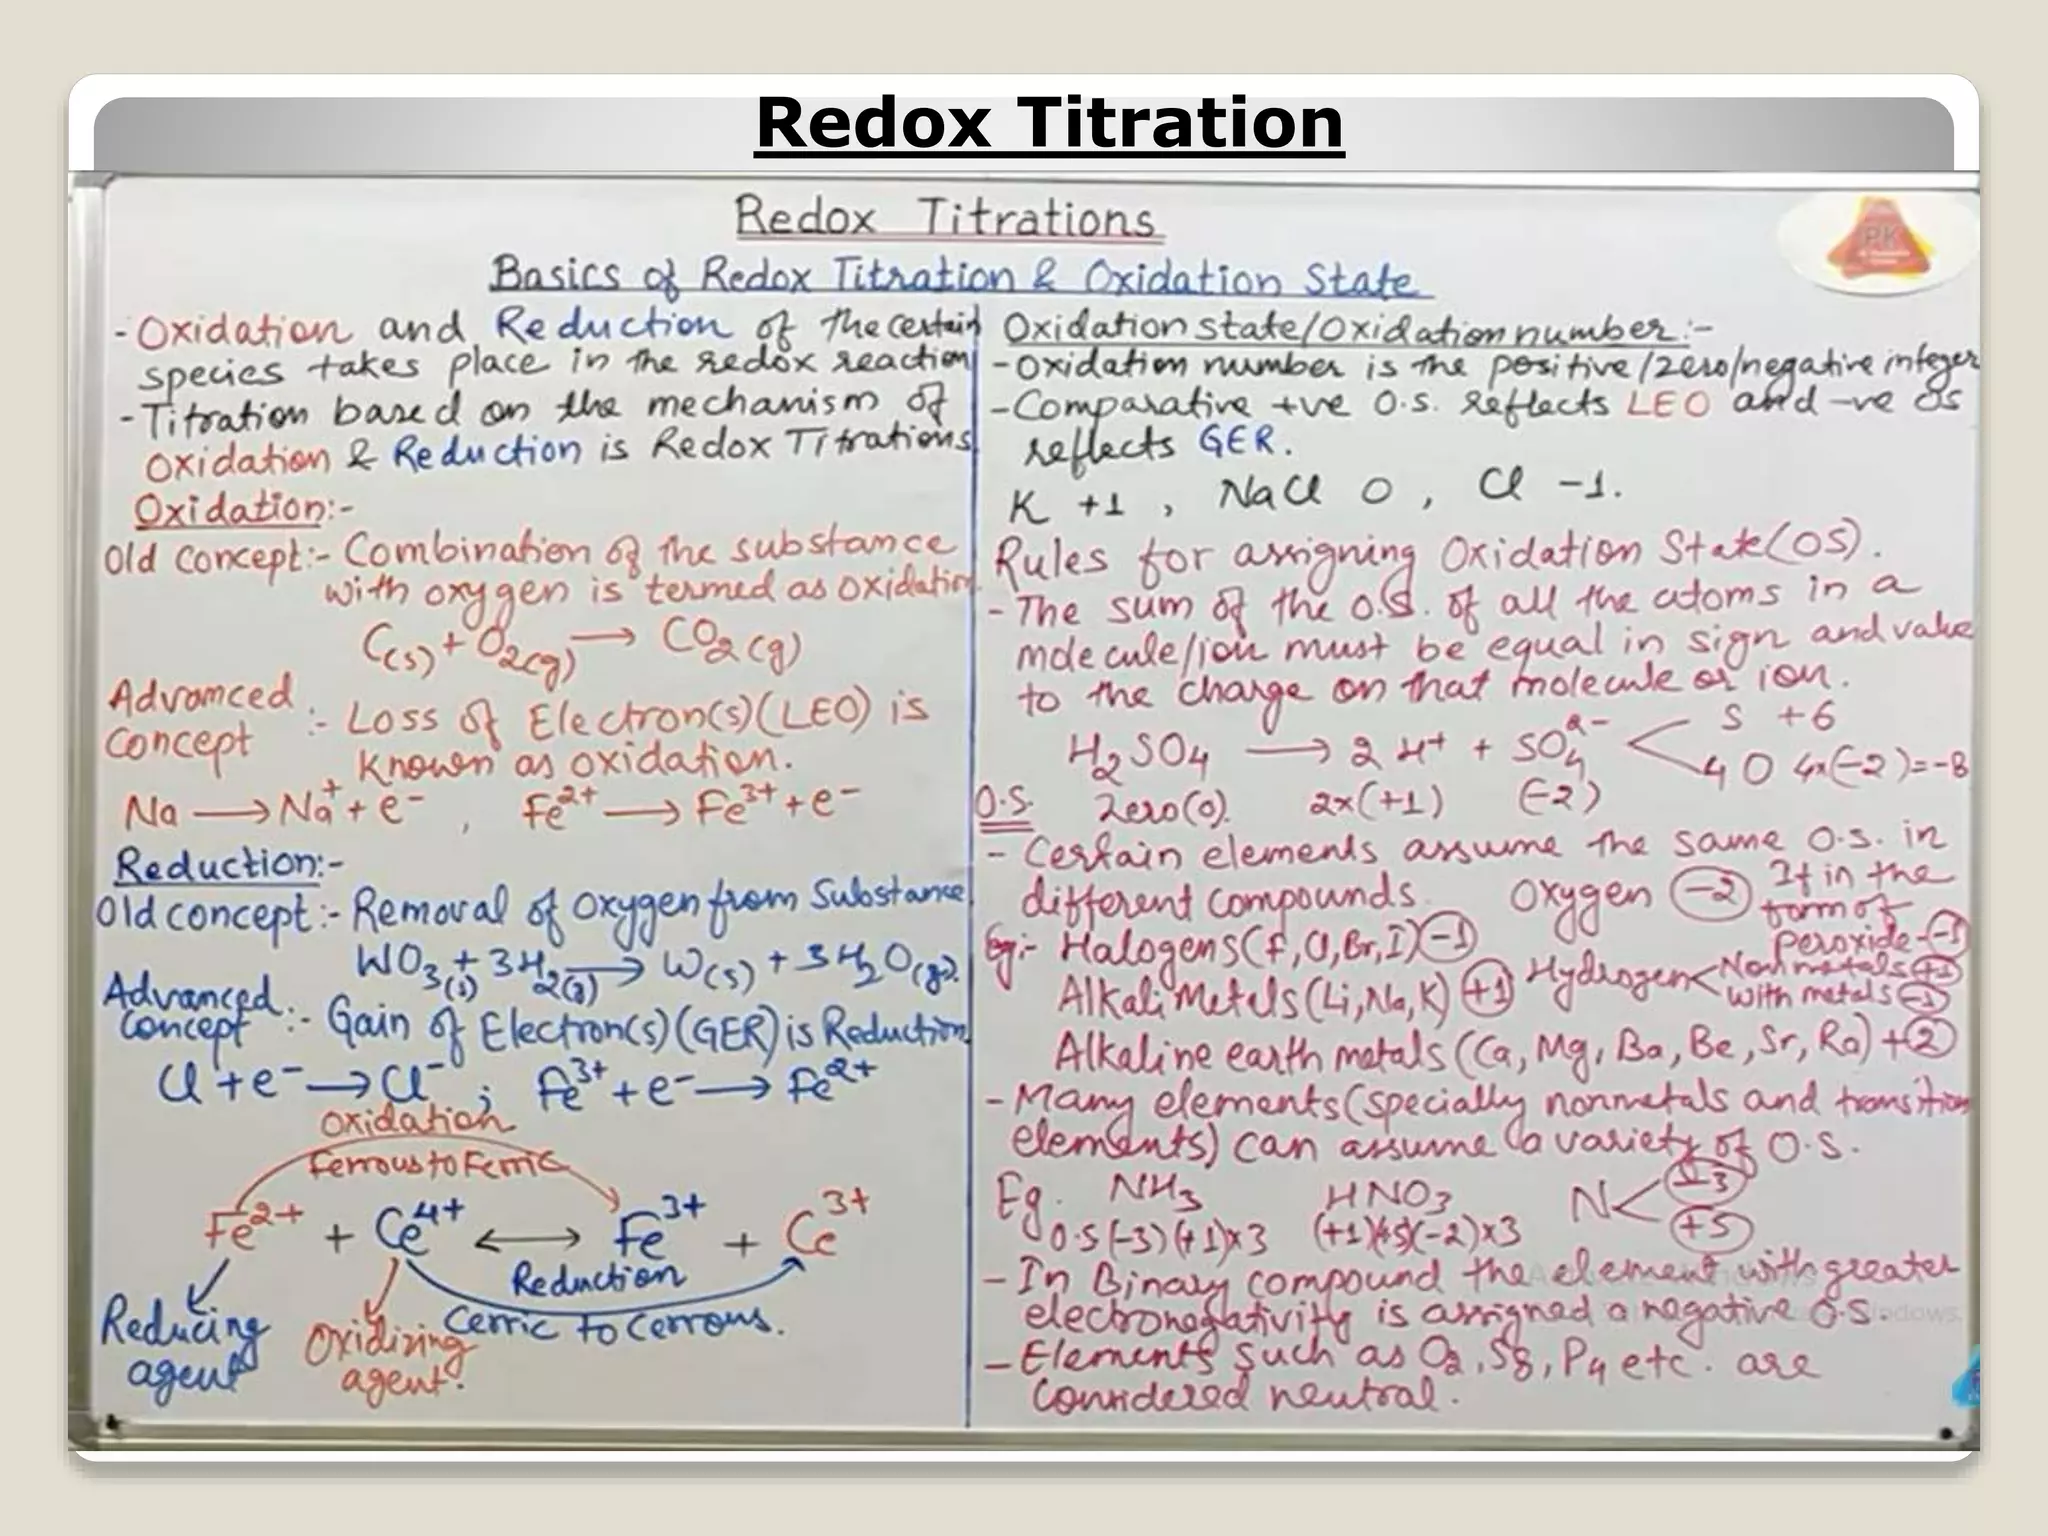 Redox Titration
Redox Titrations
Basics of Redox Titration & Oxidation State
- Oxidation and Reduction of the certain
species takes place in the redox reaction
- Titration based on the mechanism of
Oxidation & Reduction is Redox Titrations
Oxidation:-
Old Concept:- Combination of the substance
with oxygen is termed as oxidation.
C(s) + O₂(g) → CO₂(g)
Advanced
Concept :- Loss of Electron(s)(LEO) is
known as oxidation.
Na → Na⁺ + e⁻ , Fe²⁺ → Fe³⁺ + e⁻
Reduction:-
Old concept:- Removal of Oxygen from Substance
WO₃(s) + 3H₂(g) → W(s) + 3H₂O(g).
Advanced
Concept :- Gain of Electron(s)(GER) is Reduction.
Cl + e⁻ → Cl⁻ ; Fe³⁺ + e⁻ → Fe²⁺
Oxidation
Ferrous to Ferric
Fe²⁺ + Ce⁴⁺ ↔ Fe³⁺ + Ce³⁺
Reduction
Cerric to Cerrous.
Reducing
agent
Oxidizing
agent.
Oxidation state/Oxidation number:-
- Oxidation number is the positive/zero/negative integer
- Comparative +ve O.S. reflects LEO and -ve OS
reflects GER.
K +1 , NaCl 0 , Cl -1.
Rules for assigning Oxidation State(OS).
- The sum of the O.S. of all the atoms in a
molecule/ion must be equal in sign and value
to the charge on that molecule or ion.
H₂SO₄ → 2H⁺ + SO₄²⁻ < S +6
4 O 4x(-2)=-8
O.S. Zero(0). 2x(+1) (-2)
- Certain elements assume the same O.S. in
different compounds. Oxygen -2 If in the
form of
peroxide -1
Eg:- Halogens(F,Cl,Br,I) -1
Alkali Metals(Li,Na,K) +1 Hydrogen < Nonmetals +1
with metals -1
Alkaline earth metals (Ca, Mg, Ba, Be, Sr, Ra) +2
- Many elements(specially nonmetals and transition
elements) can assume a variety of O.S.
Eg. NH₃ HNO₃ N < -3
+5
O.S (-3)(+1)x3 (+1)(+5)(-2)x3
- In Binary compound the element with greater
electronegativity is assigned a negative O.S.
- Elements such as O₂, S₈, P₄ etc. are
considered neutral.
PK